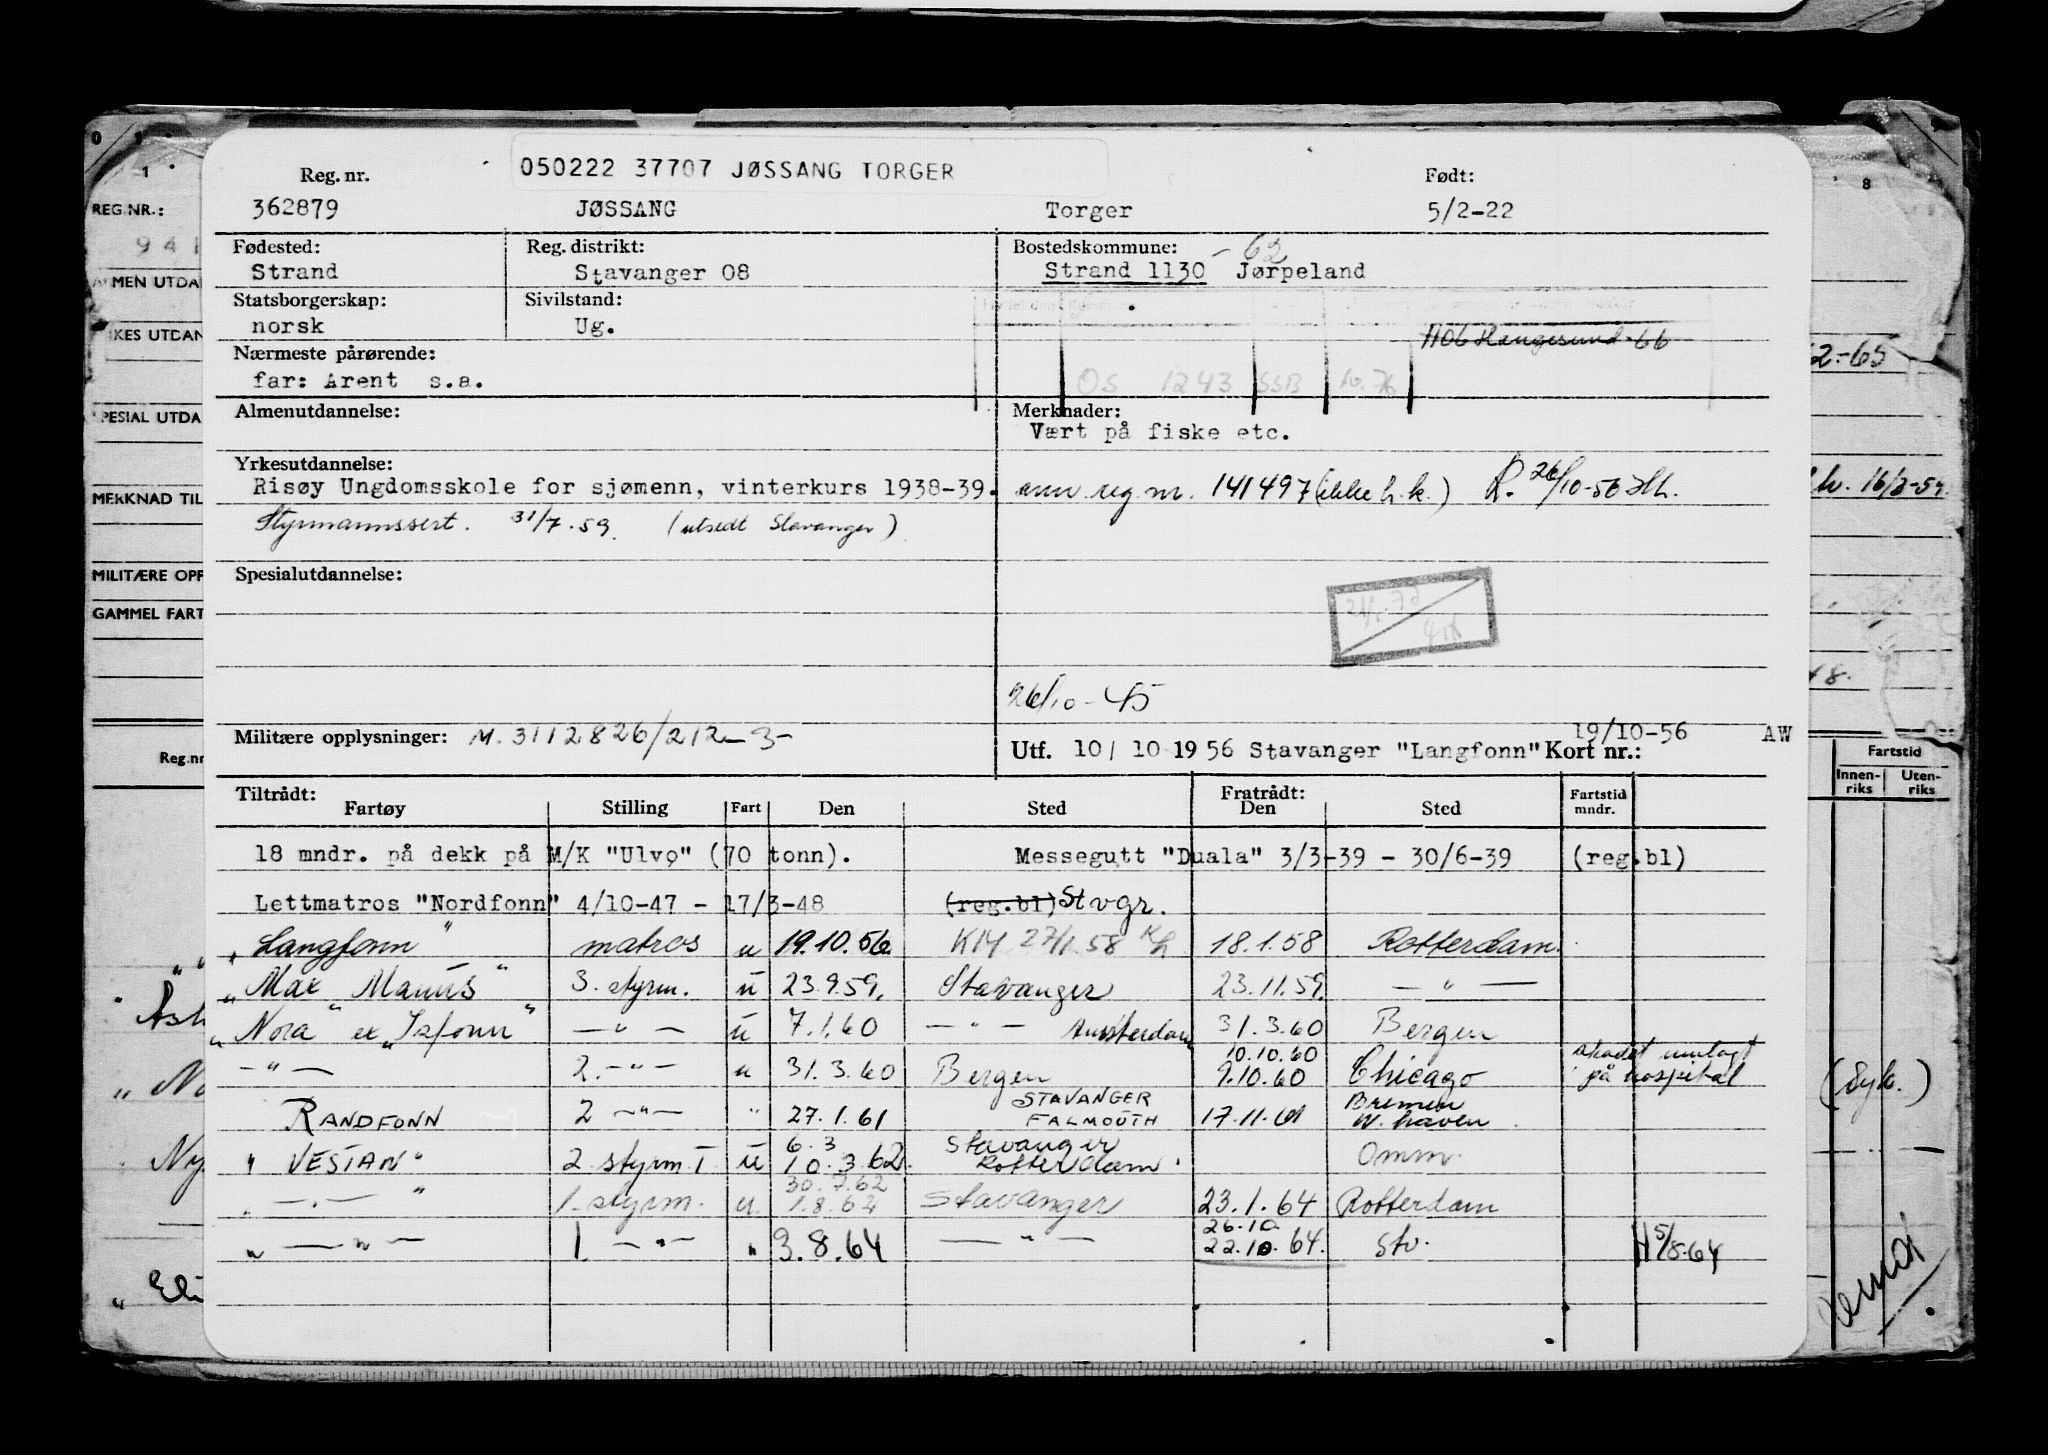 050222 37707 JØSSANG TORGER
Reg. nr. Født:
362879 JØSSANG Torger 5/2-22
Fødested: Reg. distrikt: Bostedskommune: -62
Strand Stavanger 08 Strand 1130 Jørpeland
Statsborgerskap: Sivilstand:
norsk Ug.
1106 Haugesund-66
Nærmeste pårørende:
far: Arent s.a.
OS 1243 SSB 10.76
Almenutdannelse: Merknader:
Vært på fiske etc.
Yrkesutdannelse:
Risøy Ungdomsskole for sjømenn, vinterkurs 1938-39. ann reg. nr. 141497 (ikke h.k.) R. 26/10-56
Styrmannssert. 31/7.59. (utsedt Stavanger)
Spesialutdannelse:
26/10-45
Militære opplysninger: M. 3112826/212-3-
19/10-56 AW
Utf. 10/ 10 1956 Stavanger "Langfonn" Kort nr.:
Tiltrådt: Fratrådt: Fartstid
Fartøy Stilling Fart Den Sted Den Sted mndr.
18 mndr. på dekk på M/K "Ulvo" (70 tonn). Messegutt "Duala" 3/3-39 - 30/6-39 (reg.bl)
Lettmatros "Nordfonn" 4/10-47 - 17/3-48 (reg.bl) Stvgr.
"Langfonn" matros u 19.10.56 27/1.58 18.1.58 Rotterdam.
"Max Manus" 3. styrm. u 23.9.59. Stavanger 23.11.59. — " —
"Nora" ex "Isfonn" — " — u 7.1.60 — " — Amsterdam 31.3.60 Bergen
— " — 2. — " — u 31.3.60 Bergen 10.10.60 9.10.60 Chicago skadet innlagt på hospital
RANDFONN 2 — " — " 27.1.61 STAVANGER FALMOUTH 17.11.61 Bremen W. haven
"VESTAN" 2. styrm I u 6.3 10.3.62. Stavanger Rotterdam. Omm.
" — " — " 1. styrm. u. 30.7.62 1.8.62 Stavanger 23.1.64 Rotterdam
" — " — 1. — " — " 3.8.64 — " — 26.10 22.10.64. Stv. H 5/8-64
0
1
REG.NR.:
941
MERKNAD TIL
GAMMEL FART
Reg.nr
8
2-65
16/3-59
48.
Fartstid
Innen-
riks
Uten-
riks
(Syk.)